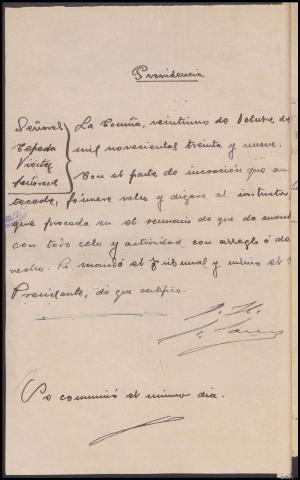 Providencia
Señores
Cepeda
Vieitez
La Coruña, veintiuno de Octubre de
mil novecientos treinta y nueve.
Con el parte de incoación que an
tecede, fórmese rollo y dígase al instructor
que proceda en el sumario de que da cuenta
con todo celo y actividad con arreglo á de
recho. Lo mandó el Tribunal y rubrica el Sr
Presidente, de que certifico.
Se cumplió el mismo día.